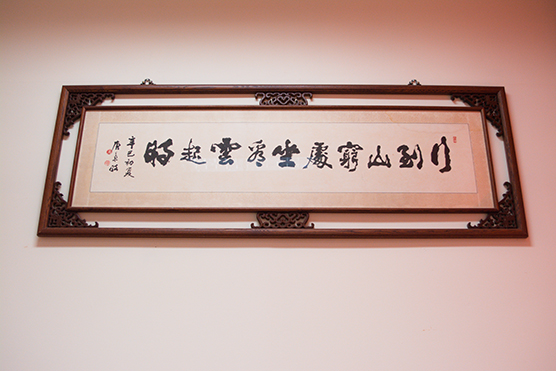 行到山窮處坐看雲起時
辛巳初夏